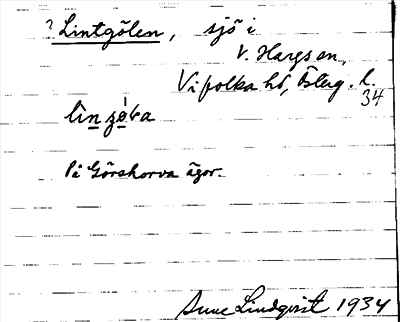 ? Lintgölen, sjö i
V. Hargs sn,
Vifolka hd, Österg. l.
34
På Görshorva ägor.
Sune Lindqvist 1934